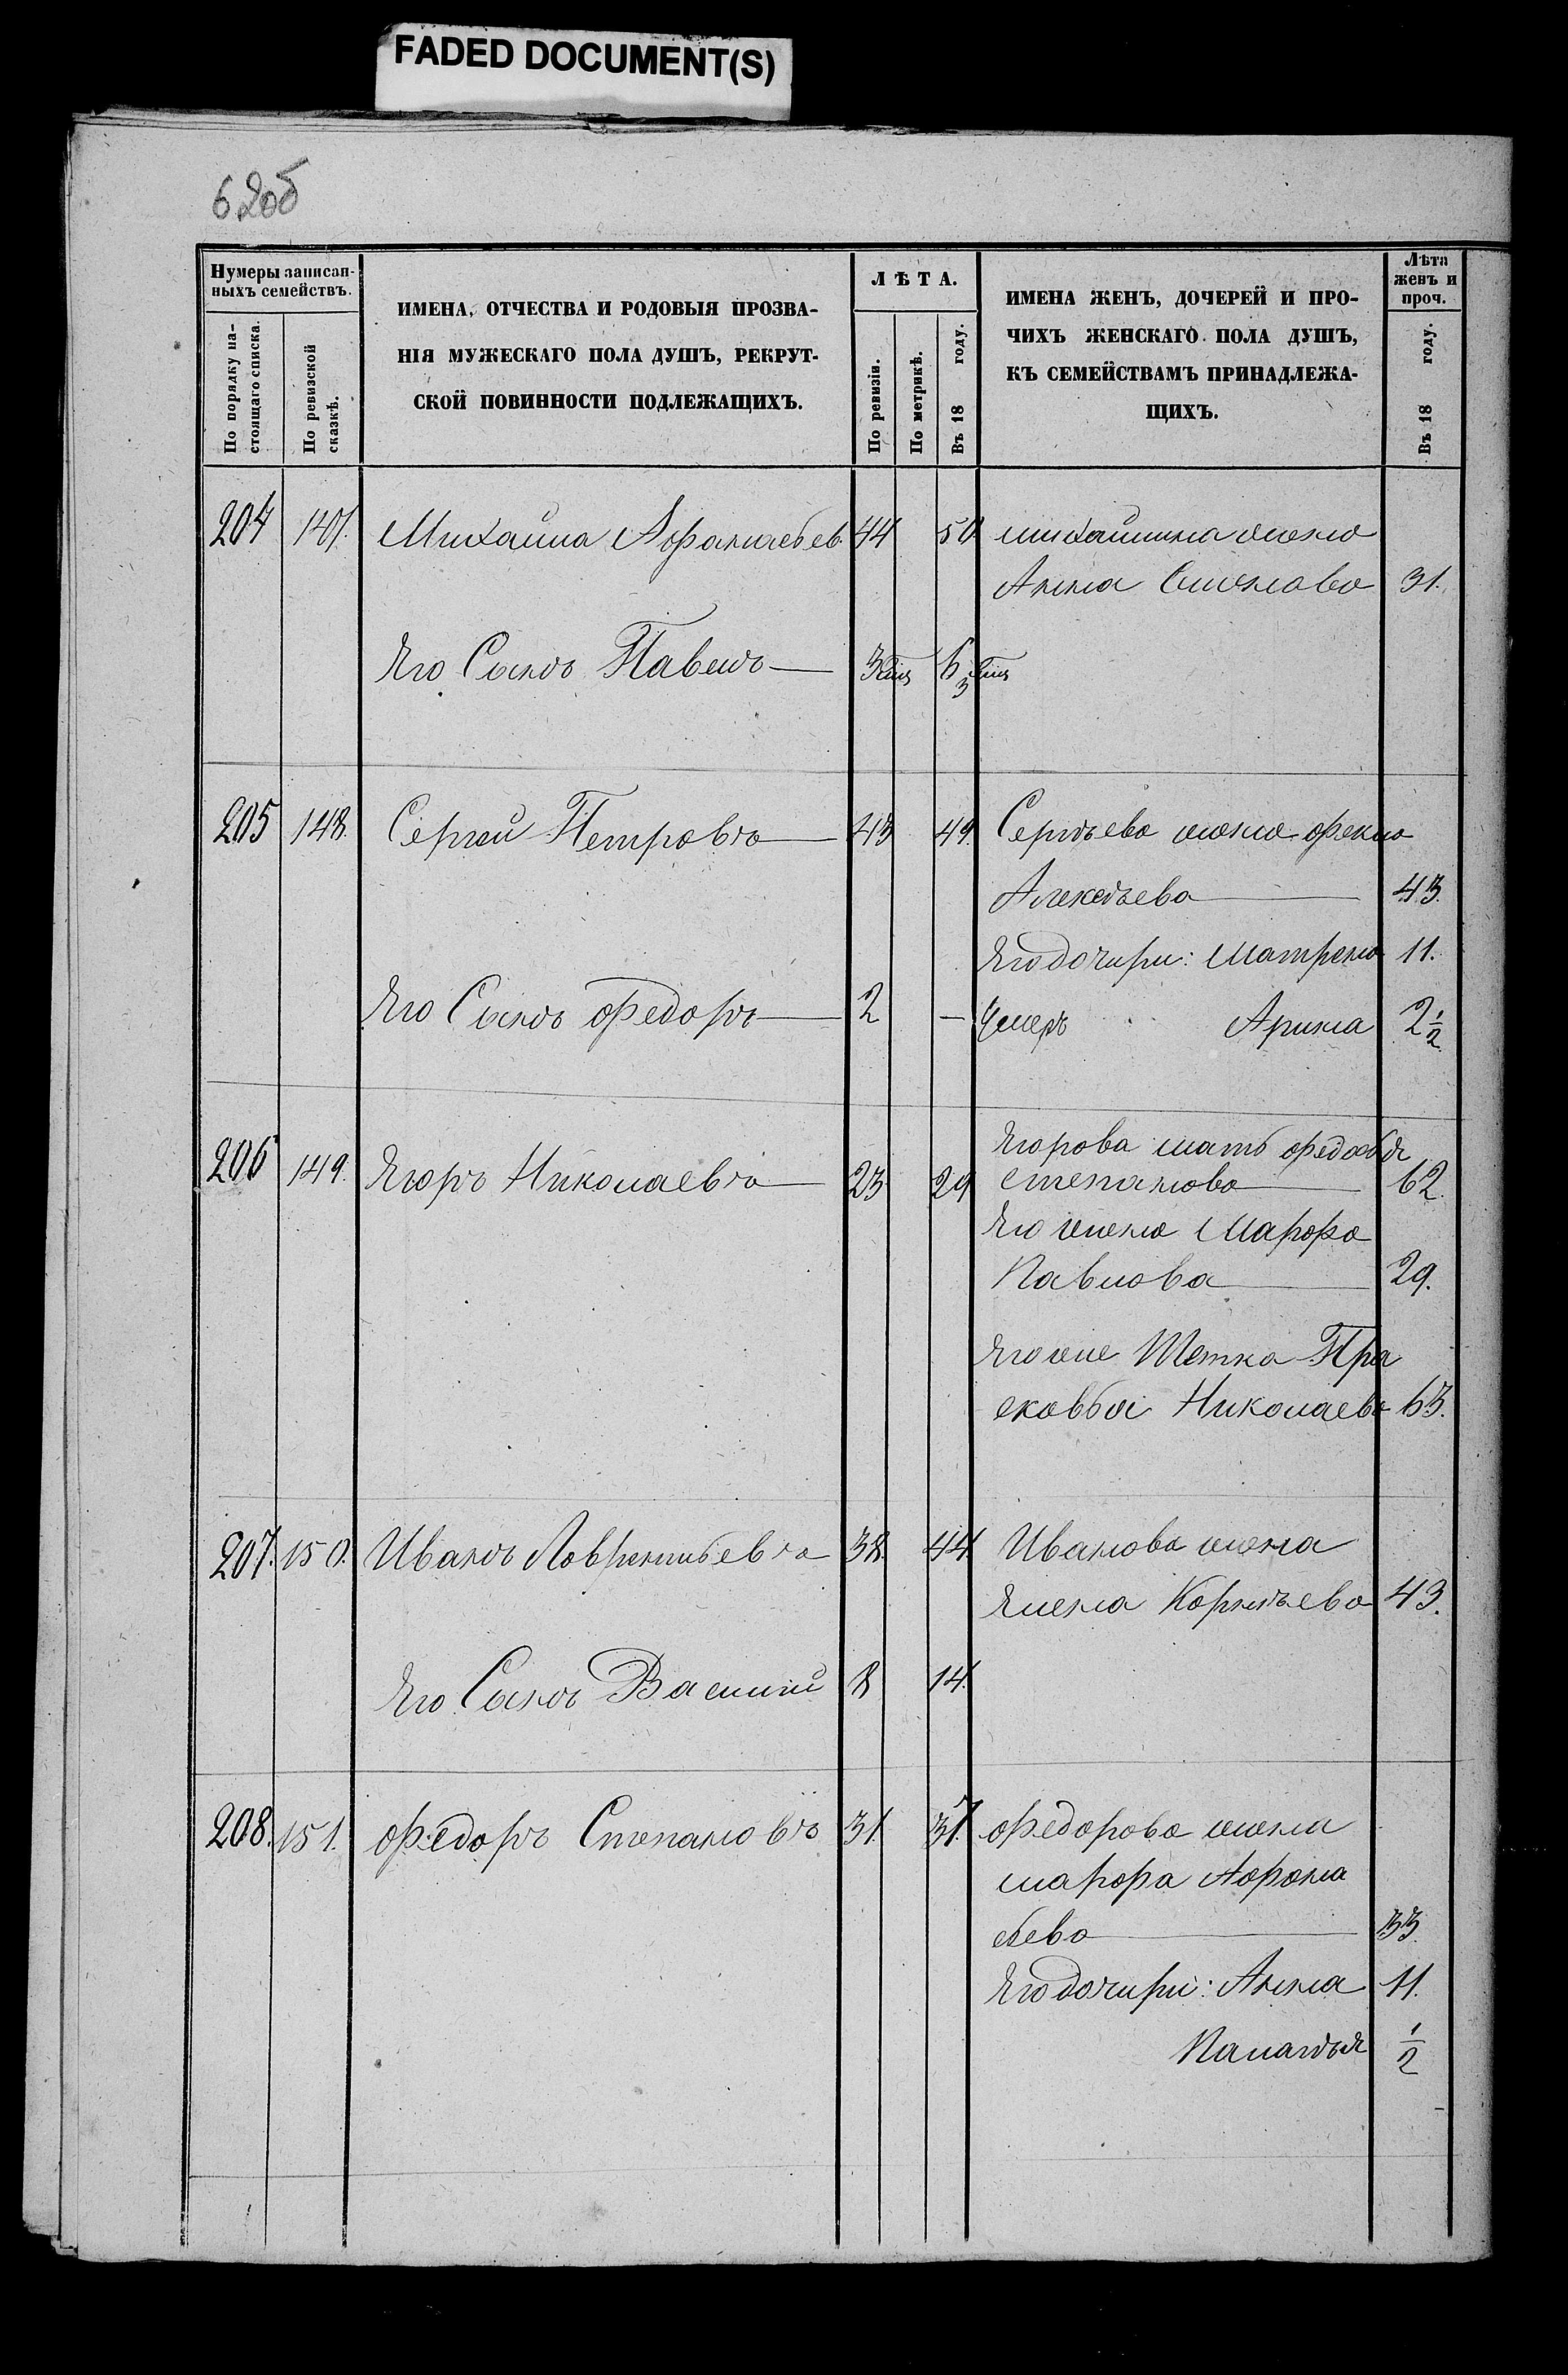 FADED DOCUMENT(S)
62об
Нумеры записан-
ныхъ семействъ.
По порядку на-
стоящаго списка.
По ревизской
сказкѣ.
ИМЕНА, ОТЧЕСТВА И РОДОВЫЯ ПРОЗВА-
НІЯ МУЖЕСКАГО ПОЛА ДУШЪ, РЕКРУТ-
СКОЙ ПОВИННОСТИ ПОДЛЕЖАЩИХЪ.
ЛѢТА.
По ревизіи.
По метрикѣ.
Въ 18 году.
ИМЕНА ЖЕНЪ, ДОЧЕРЕЙ И ПРО-
ЧИХЪ ЖЕНСКАГО ПОЛА ДУШЪ,
КЪ СЕМЕЙСТВАМЪ ПРИНАДЛЕЖА-
ЩИХЪ.
Лѣта
женъ и
проч.
Въ 18 году.
204 147. Михаила Афанасьев. 44 50 михайлина жена
Анна 31.
Яго Сынъ Павелъ 3 6
205 148. Сергей Петровъ 43 49. Сергѣева жена Фекла
Алексѣева 43.
Яго дочири: Матрена 11.
Яго Сынъ Федоръ 2 — Умеръ Арина 2 1/2
206 149. Ягоръ Николаевъ 23 29 Ягорова мать Федосья
степанова 62.
Яго жена Марфа
Павлова 29.
Яго же Тетка Пра
сковья Николаева 63.
207. 150. Иванъ Лаврентьевъ 38. 44. Иванова жена
Ялена Корнѣева 43.
Яго Сынъ Василий 8 14.
208. 151. Федоръ Степановъ 31. 37. Федорова жена
марфа Афона
сьева 33.
Яго дочири: Анна 11.
Палагѣя 1/2